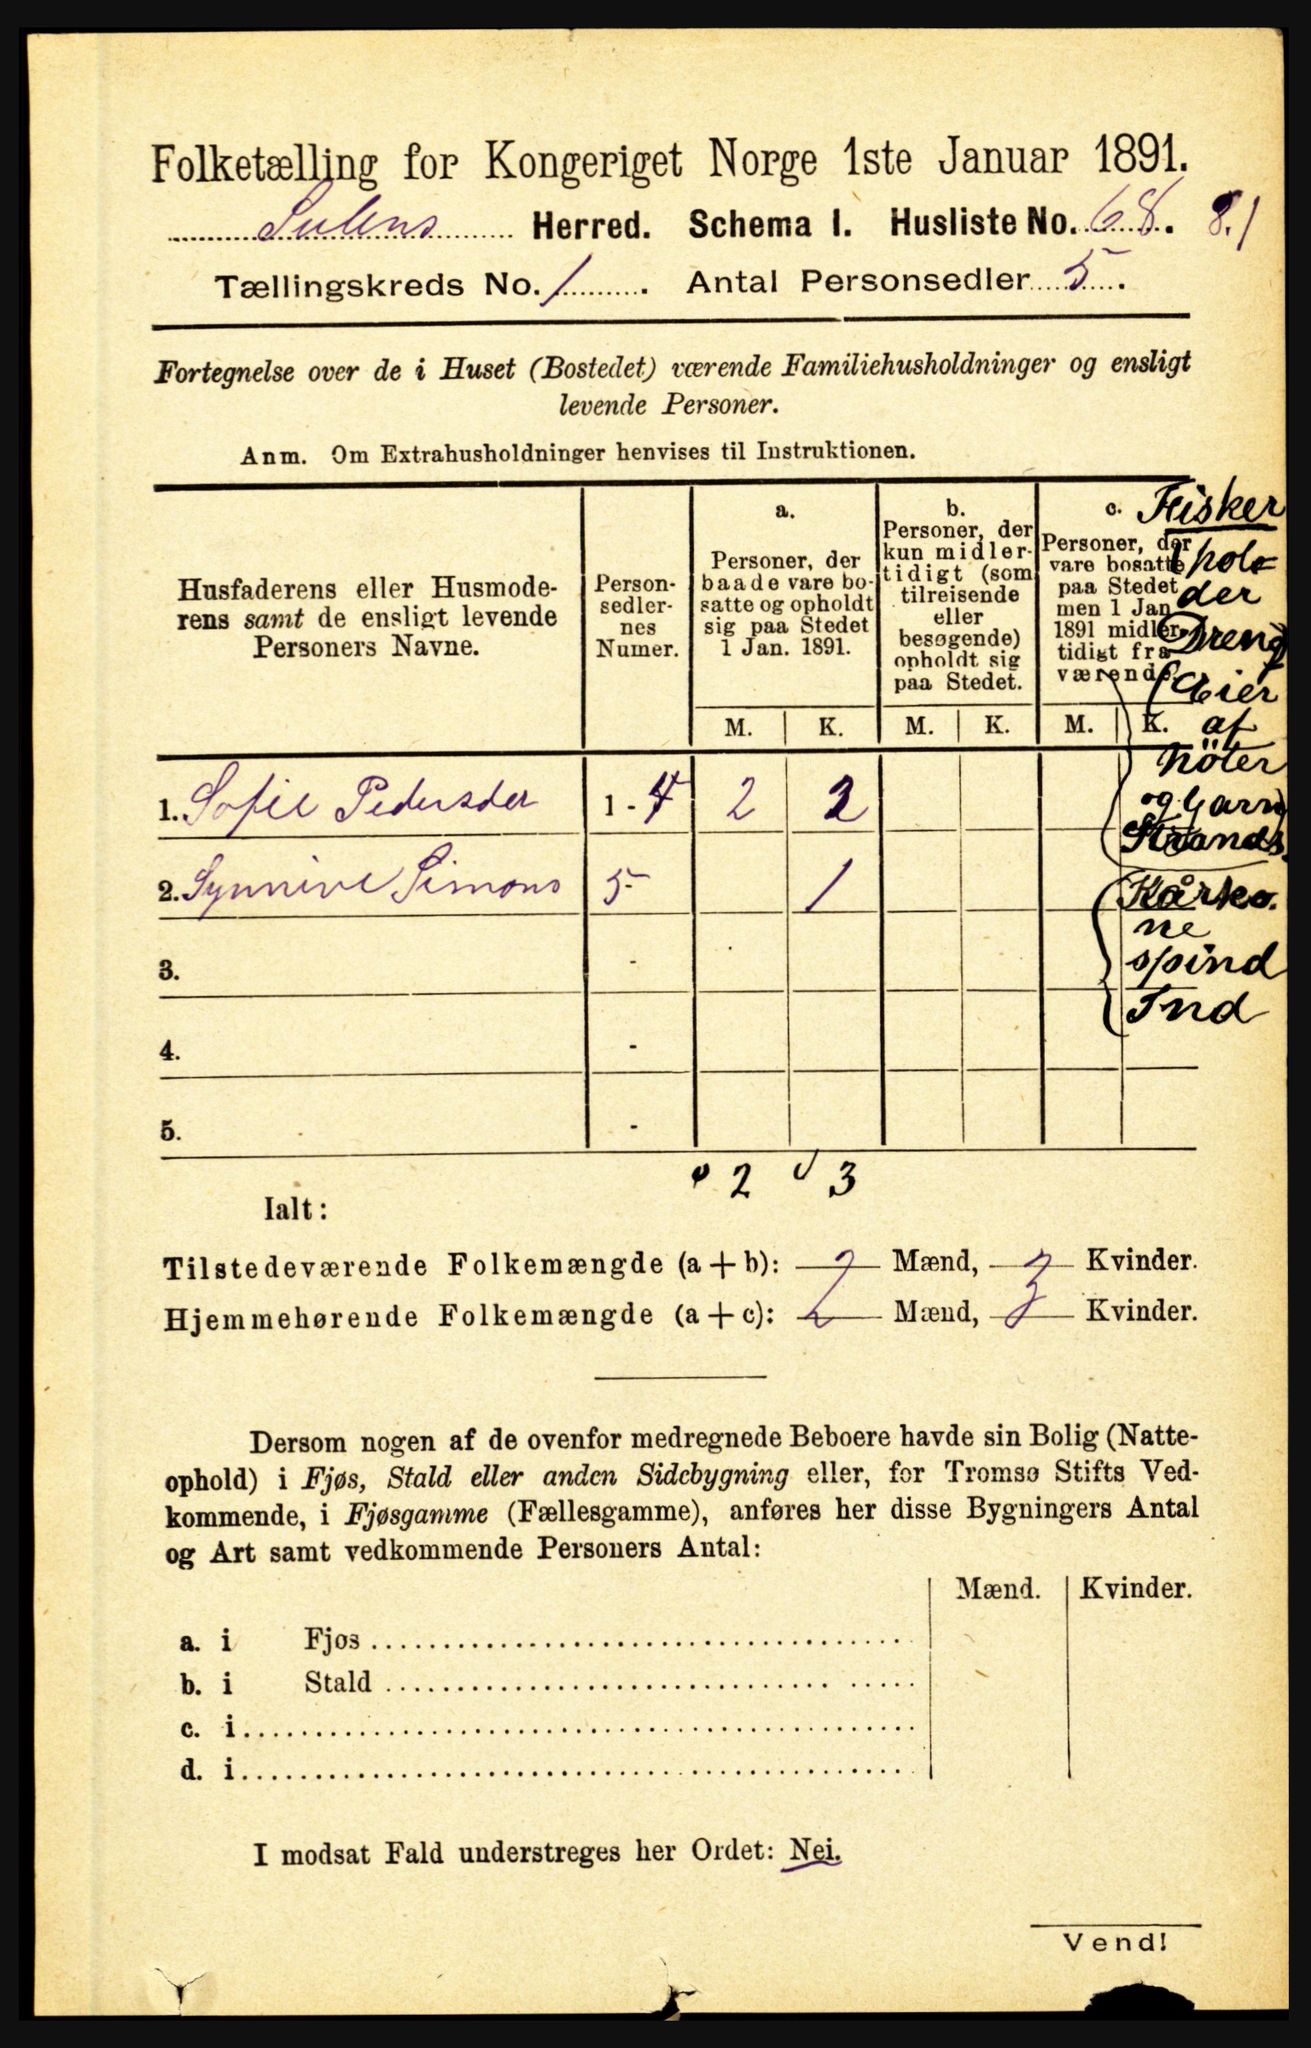 Folketælling for Kongeriget Norge 1ste Januar 1891.
Sulens Herred. Schema I. Husliste No. 68. 8.1
Tællingskreds No. 1. Antal Personsedler 5.
Fortegnelse over de i Huset (Bostedet) værende Familiehusholdninger og ensligt
levende Personer.
Anm. Om Extrahusholdninger henvises til Instruktionen.
Husfaderens eller Husmode-
rens samt de ensligt levende
Personers Navne.
Person-
sedler-
nes
Numer.
a.
Personer, der
baade vare bo-
satte og opholdt
sig paa Stedet
1 Jan. 1891.
b.
Personer, der
kun midler-
tidigt (som
tilreisende
eller
besøgende)
opholdt sig
paa Stedet.
c.
Personer, der
vare bosatte
paa Stedet
men 1 Jan
1891 midler-
tidigt fra
værende.
M. K. M. K. M. K.
Fisker
hol-
der
Dreng
Eier
af
Nöter
og Garn
Strands.
Kårko.
ne
spind
Ind
1. Sofie Pedersder 1 - 4 2 2
2. Synnive Simons 5 - 1
3. -
4. -
5. -
2 3
Ialt:
Tilstedeværende Folkemængde (a + b): 2 Mænd, 3 Kvinder.
Hjemmehørende Folkemængde (a + c): 2 Mænd, 3 Kvinder.
Dersom nogen af de ovenfor medregnede Beboere havde sin Bolig (Natte-
ophold) i Fjøs, Stald eller anden Sidebygning eller, for Tromsø Stifts Ved-
kommende, i Fjøsgamme (Fællesgamme), anføres her disse Bygningers Antal
og Art samt vedkommende Personers Antal:
Mænd. Kvinder.
a. i Fjøs
b. i Stald
c. i
d. i
I modsat Fald understreges her Ordet: Nei.
Vend!